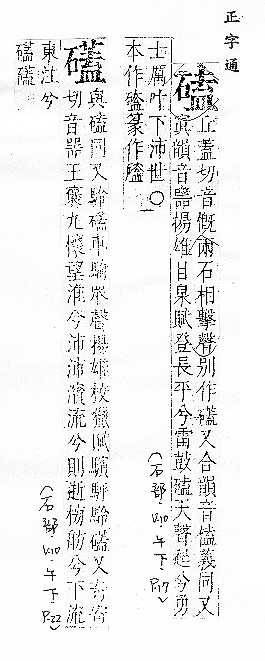 正字通
磕
丘蓋切音慨兩石相擊聲別作礚又合韻音榼義同又
寘韻音器揚雄甘泉賦登長平兮雷鼓磕天聲起兮勇
士厲叶下沛世○
本作 篆作
(石部 K10·午下·P.17)
礚
與磕同又駖礚車騎眾聲揚雄校獵賦驞駍駖礚又奇寄
切音器王襃九懷望淮兮沛沛濱流兮則逝榜舫兮下流
東注兮
礚礚
(石部 K10·午下·P.22)